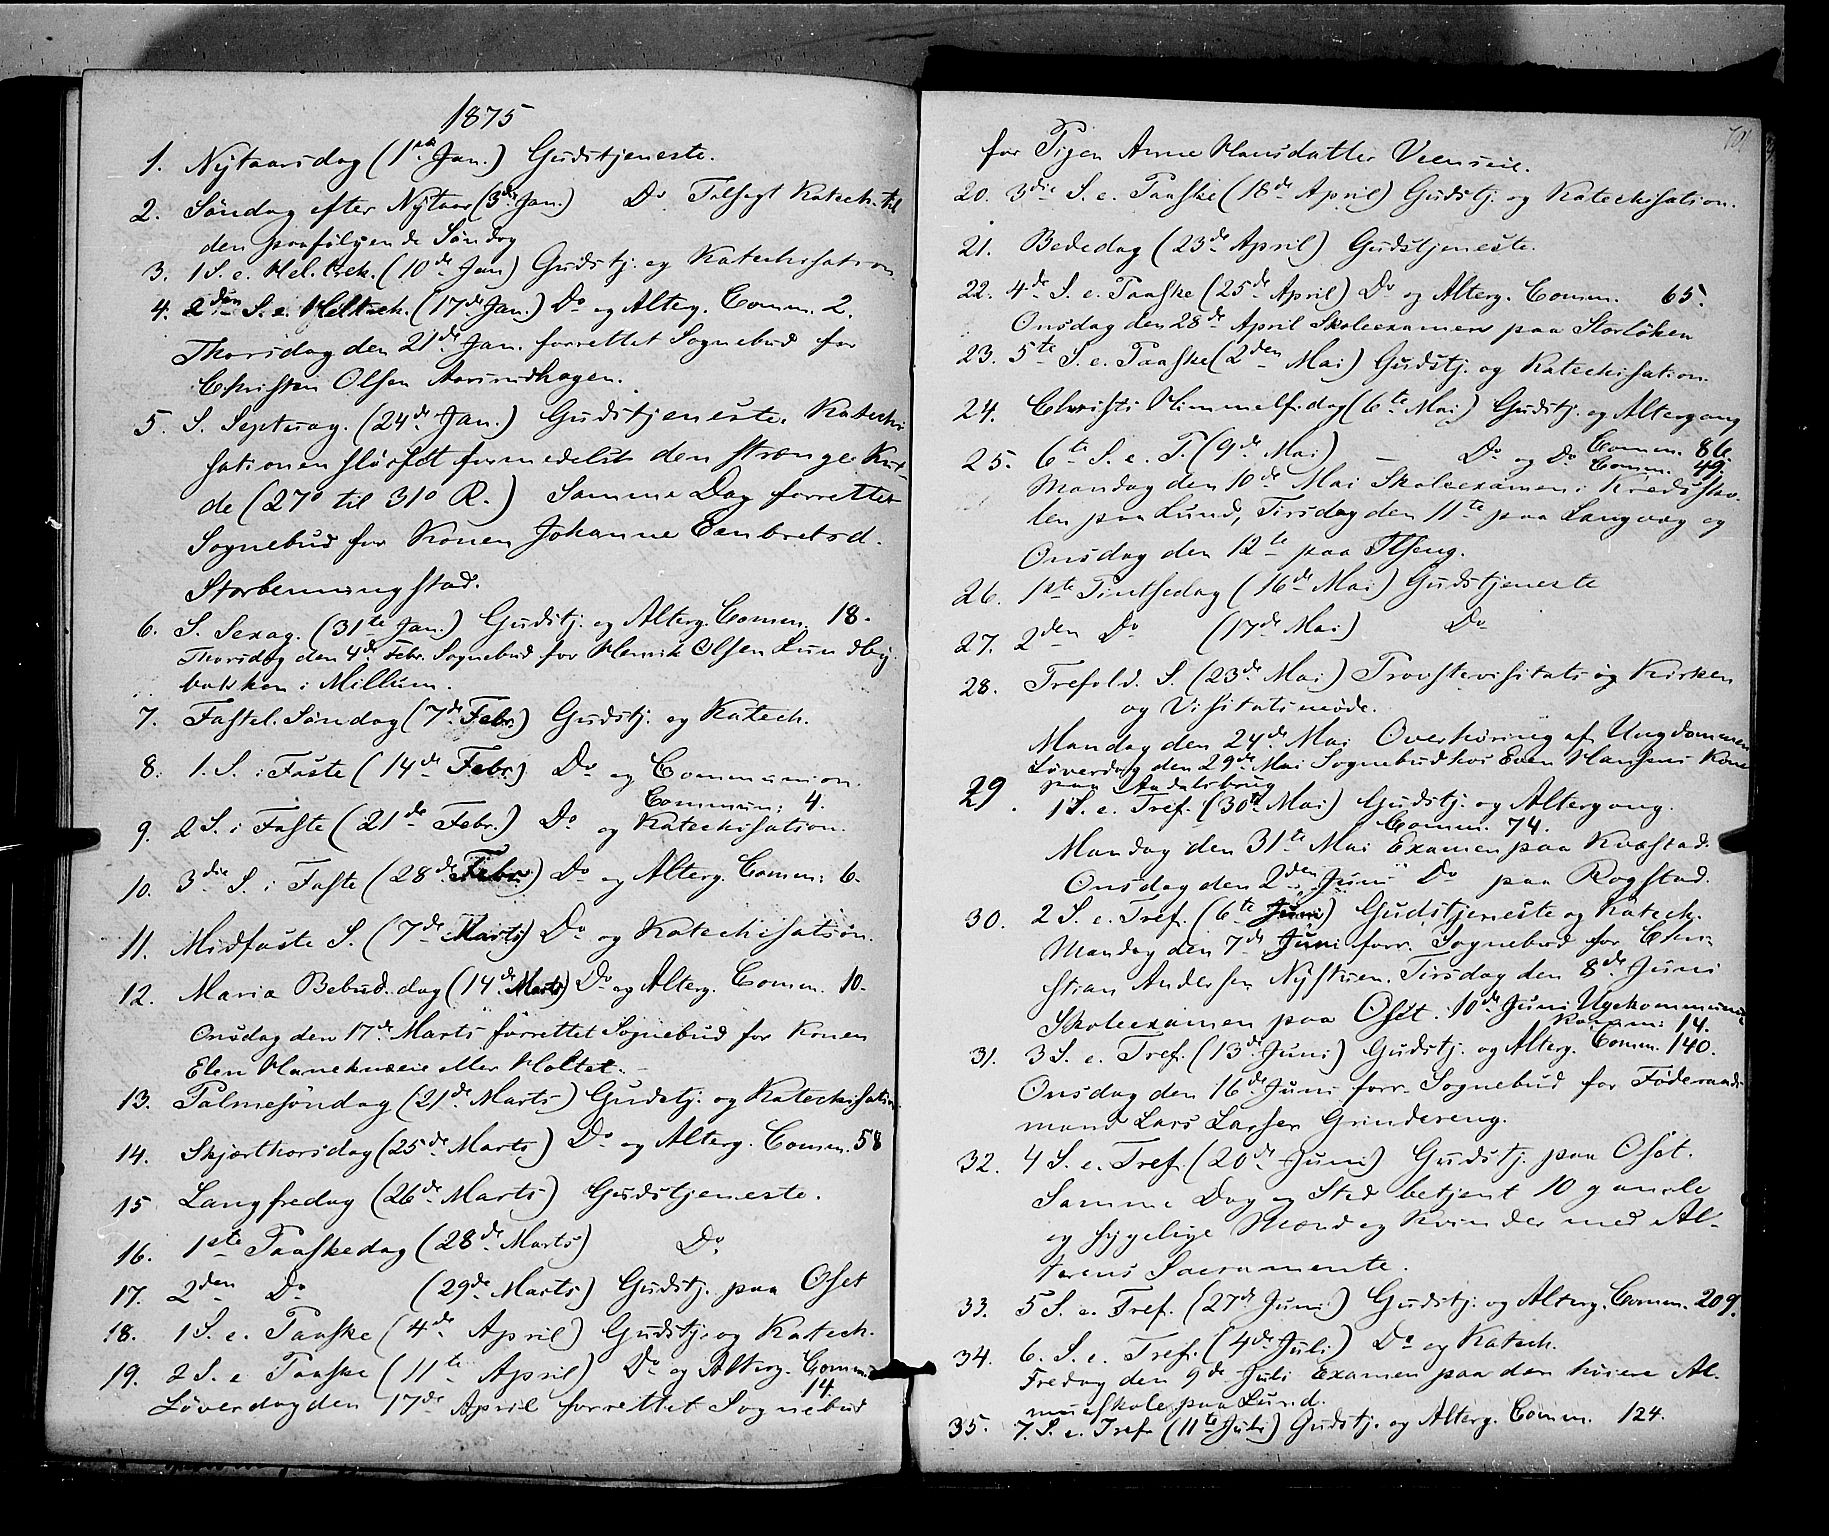 1875
1. Nytaarsdag (1ste Jan.) Gudstjeneste.
2. Søndag efter Nytaar (3die Jan.) Do Tilsagt Katech. til
den paafølgende Søndag
3. 1 S. e. Hel. 3 Kk. (10de Jan) Gudstj. og Katechisation
4. 2den S. e. Hell. 3 k. (17de Jan.) Do og Alterg. Comm. 2.
Thorsdag den 21de Jan. forrettet Sognebud for
Christen Olsen Aasrudhagen.
5. S. Septuag. (24de Jan.) Gudstjeneste. Katechi
sationen sløifet formedelst den strænge Kul-
de (27° til 31° R.) Samme Dag forrettet
Sognebud for Konen Johanne Eenbretsd.
Storbenningstad.
6. S. Sexag. (31te Jan.) Gudstj. og Alterg. Comm. 18.
Thorsdag den 4de Febr. Sognebud for Henrik Olsen Lundby
bakken i Millum.
7. Fastel. Søndag (7de Febr.) Gudstj. og Katech.
8. 1. S. i Faste (14de Febr.) Do og Communion.
Commun: 4.
9. 2 S. i Faste (21de Febr.) Do og Katechisation.
10. 3die S. i Faste (28de Febr.) Do og Alterg. Comm: 6.
11. Midfaste S. (7de Marts) Do og Katechisation.
12. Maria Bebud. dag (14de Marts) Do og Alterg. Comm. 10.
Onsdag den 17de Marts forrettet Sognebud for Konen
Elen Haneknæeie eller Holtet.
13. Palmesøndag (21de Marts) Gudstj. og Katechisation
14. Skjærthorsdag (25de Marts) Do og Alterg. Comm. 58
15 Langfredag (26de Marts) Gudstjeneste.
16. 1ste Paaskedag (28de Marts) Do
17. 2den Do (29de Marts) Gudstj. paa Oset
18. 1 S. e. Paaske (4de April) Gudstj. og Katech.
19. 2 S. e Paaske (11te April) Do og Alterg. Comm:
14.
Løverdag den 17de April forrettet Sognebud
for Pigen Anne Hansdatter Veenseie.
20. 3die S. e. Paaske (18de April) Gudstj. og Katechisation.
21. Bededag (23de April) Gudstjeneste.
22. 4de S. e. Paaske (25de April) Do og Alterg. Comm. 65.
Onsdag den 28de April Skoleexamen paa Storløken
23. 5te S. e. Paaske (2den Mai) Gudstj. og Katechisation.
24. Christi Himmelf. dag (6te Mai) Gudstj. og Altergang
Comm. 86.
25. 6te S. e. P. (9de Mai) – Do og Do Comm. 49.
Mandag den 10de Mai Skoleexamen i Kredsskolen
len paa Lund, Tirsdag den 11te paa Langvag og
Onsdag den 12te paa Ilseng.
26. 1ste Pintsedag (16de Mai) Gudstjeneste
27. 2den Do (17de Mai) Do
28. Trefold. S. (23de Mai) Provstevisitats og Kirken
og Visitatsmøde.
Mandag den 24de Mai Overhøring af Ungdommen
Løverdag den 29de Mai Sognebud hos Even Hansens Kone
paa Aadalsbrug
29. 1 S. e. Tref. (30te Mai) Gudstj. og Altergang.
Comm. 74.
Mandag den 31te Mai Examen paa Kvæstad.
Onsdag den 2den Juni Do paa Rogstad.
30. 2 S. e. Tref. (6te Juni) Gudstjeneste og Katech.
Mandag den 7de Juni forr. Sognebud for Chri-
stian Andersen Nystuen. Tirsdag den 8de Juni
Skoleexamen paa Oset. 10de Juni Ugekommunion
Komm: 14.
31. 3 S. e. Tref. (13de Juni) Gudstj. og Alterg. Comm. 140.
Onsdag den 16de Juni forr. Sognebud for Føderaads
mand Lars Larsen Grindereng.
32. 4 S. e. Tref. (20de Juni) Gudstj. paa Oset.
Samme Dag og Sted betjent 10 gamle
og sygelige Mænd og Kvinder med Al-
terens Sacramente.
33. 5 S. e. Tref. (27de Juni) Gudstj. og Alterg. Comm. 209.
34. 6. S. e. Tref. (4de Juli) Do og Katech.
Fredag den 9de Juli Examen paa den høiere Al-
mueskole paa Lund.
35. 7. S. e. Tref (11te Juli) Gudstj. og Alterg. Comm. 124.